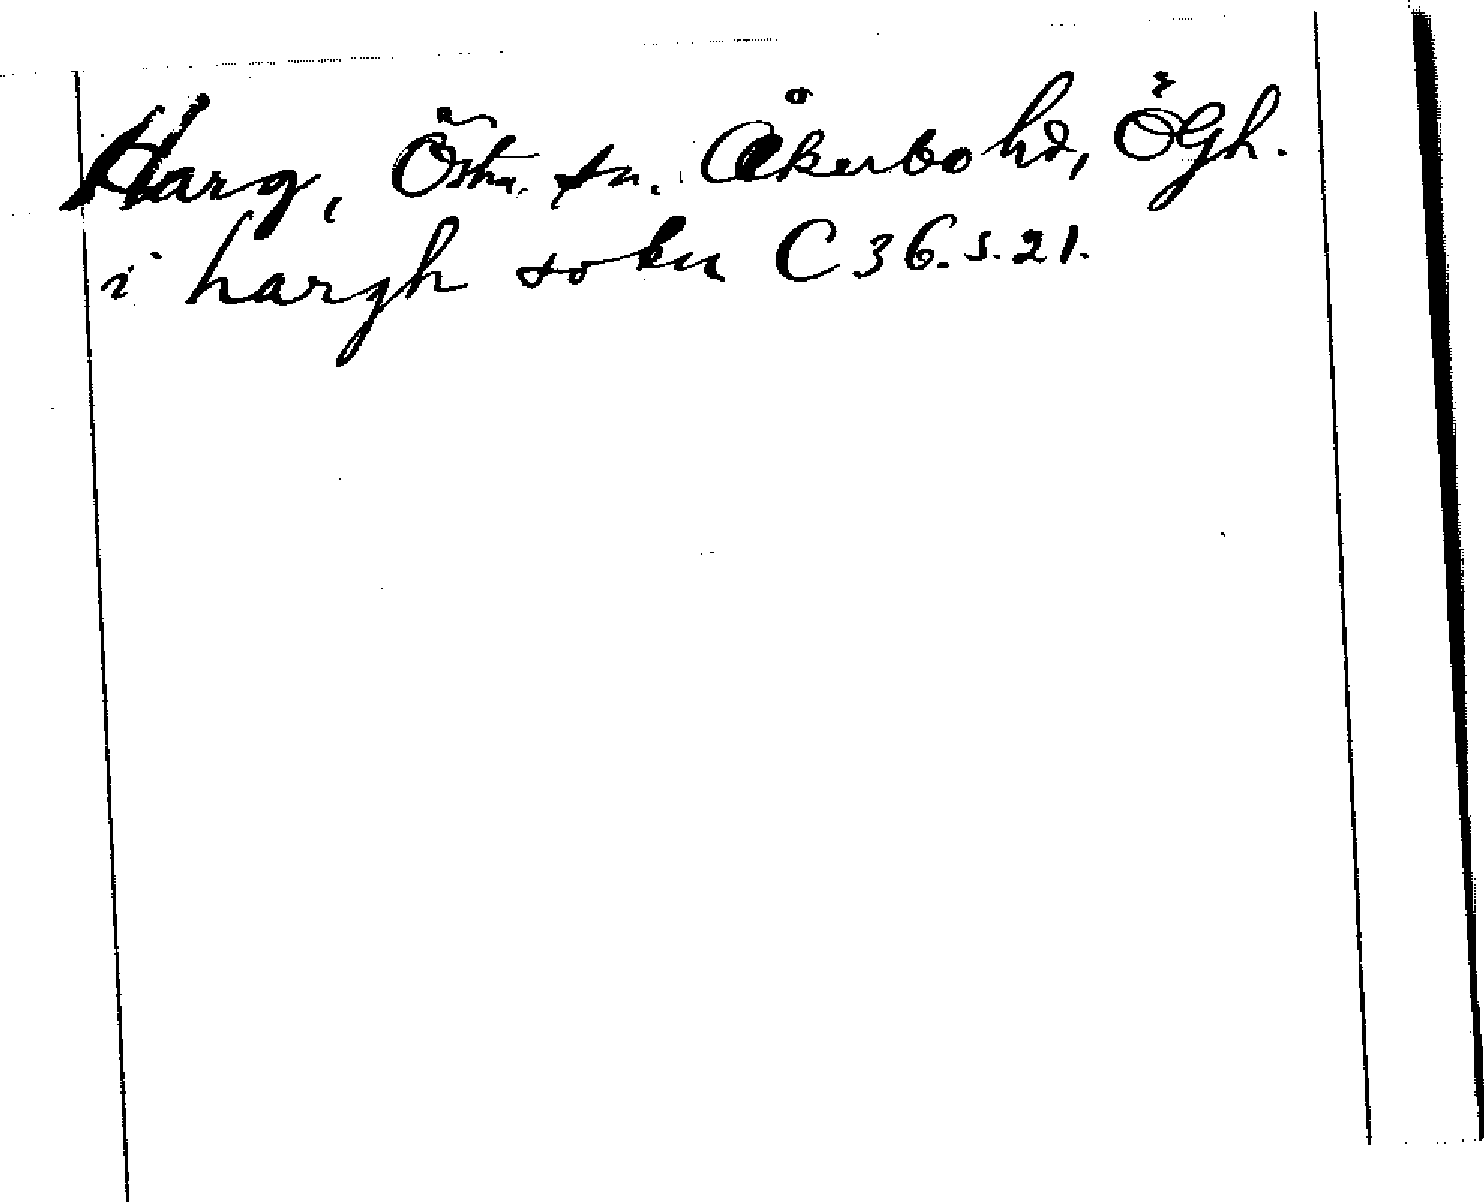 Harg, Östra sn. Åkerbo hd, Ögh.
i hargh sokn C 36. s. 21.